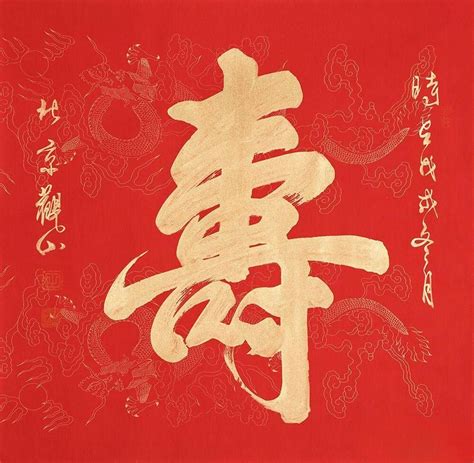 時在戊戌冬月
壽
北京觀山